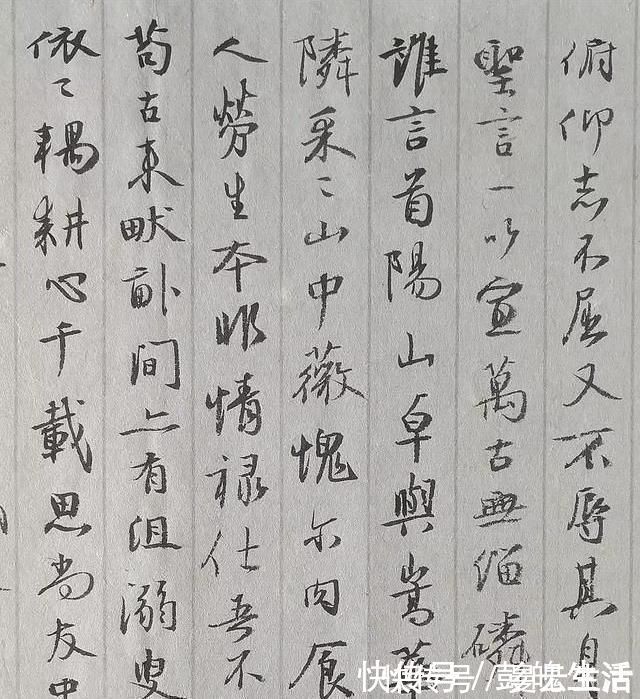 俯仰志不屈又不辱其身
聖言一以宣萬古無緇磷
誰言首陽山卓與嵩
隣采〻山中薇愧尔肉食
人勞生本情祿仕吾不
苟古来畎畝間亦有沮溺叟
依〻耦耕心千載思尚友中
快传号//彭魄生活